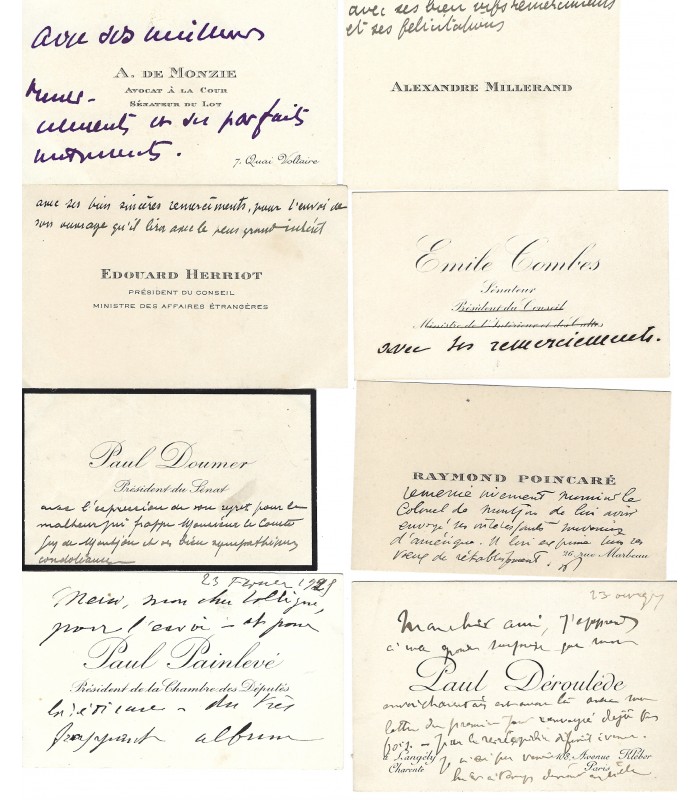 avec ses meilleurs
A. DE MONZIE
AVOCAT À LA COUR
SÉNATEUR DU LOT
remer-
ciements et ses parfaits
sentiments.
7. Quai Voltaire
avec ses bien vifs remerciments
et ses félicitations
ALEXANDRE MILLERAND
avec ses bien sincères remerciments, pour l'envoi de
son ouvrage qu'il lira avec le plus grand intérêt
EDOUARD HERRIOT
PRÉSIDENT DU CONSEIL
MINISTRE DES AFFAIRES ÉTRANGÈRES
Emile Combes
Sénateur
Président du Conseil
Ministre de l'Intérieur et des Cultes
avec ses remerciements.
Paul Doumer
Président du Sénat
avec l'expression de son regret pour le
malheur qui frappe Monsieur le Comte
Guy de et ses bien sympathiques
condoléances
RAYMOND POINCARÉ
remercie vivement monsieur le
Colonel de de lui avoir
envoyé ses intéressants souvenirs
d'amérique. Il lui exprime tous ses
vœux de rétablissement.
26, rue Marbeau
23 Février
Merci, mon cher
pour l'envoi - et pour
Paul Painlevé
Président de la Chambre des Députés
- du très
frappant album
Mon cher ami, j'apprends
à ma grande surprise que mon
Paul Déroulède
lettre du premier jour renvoyée déjà
fois -
à Langély
Charente
108, Avenue Kléber
Paris